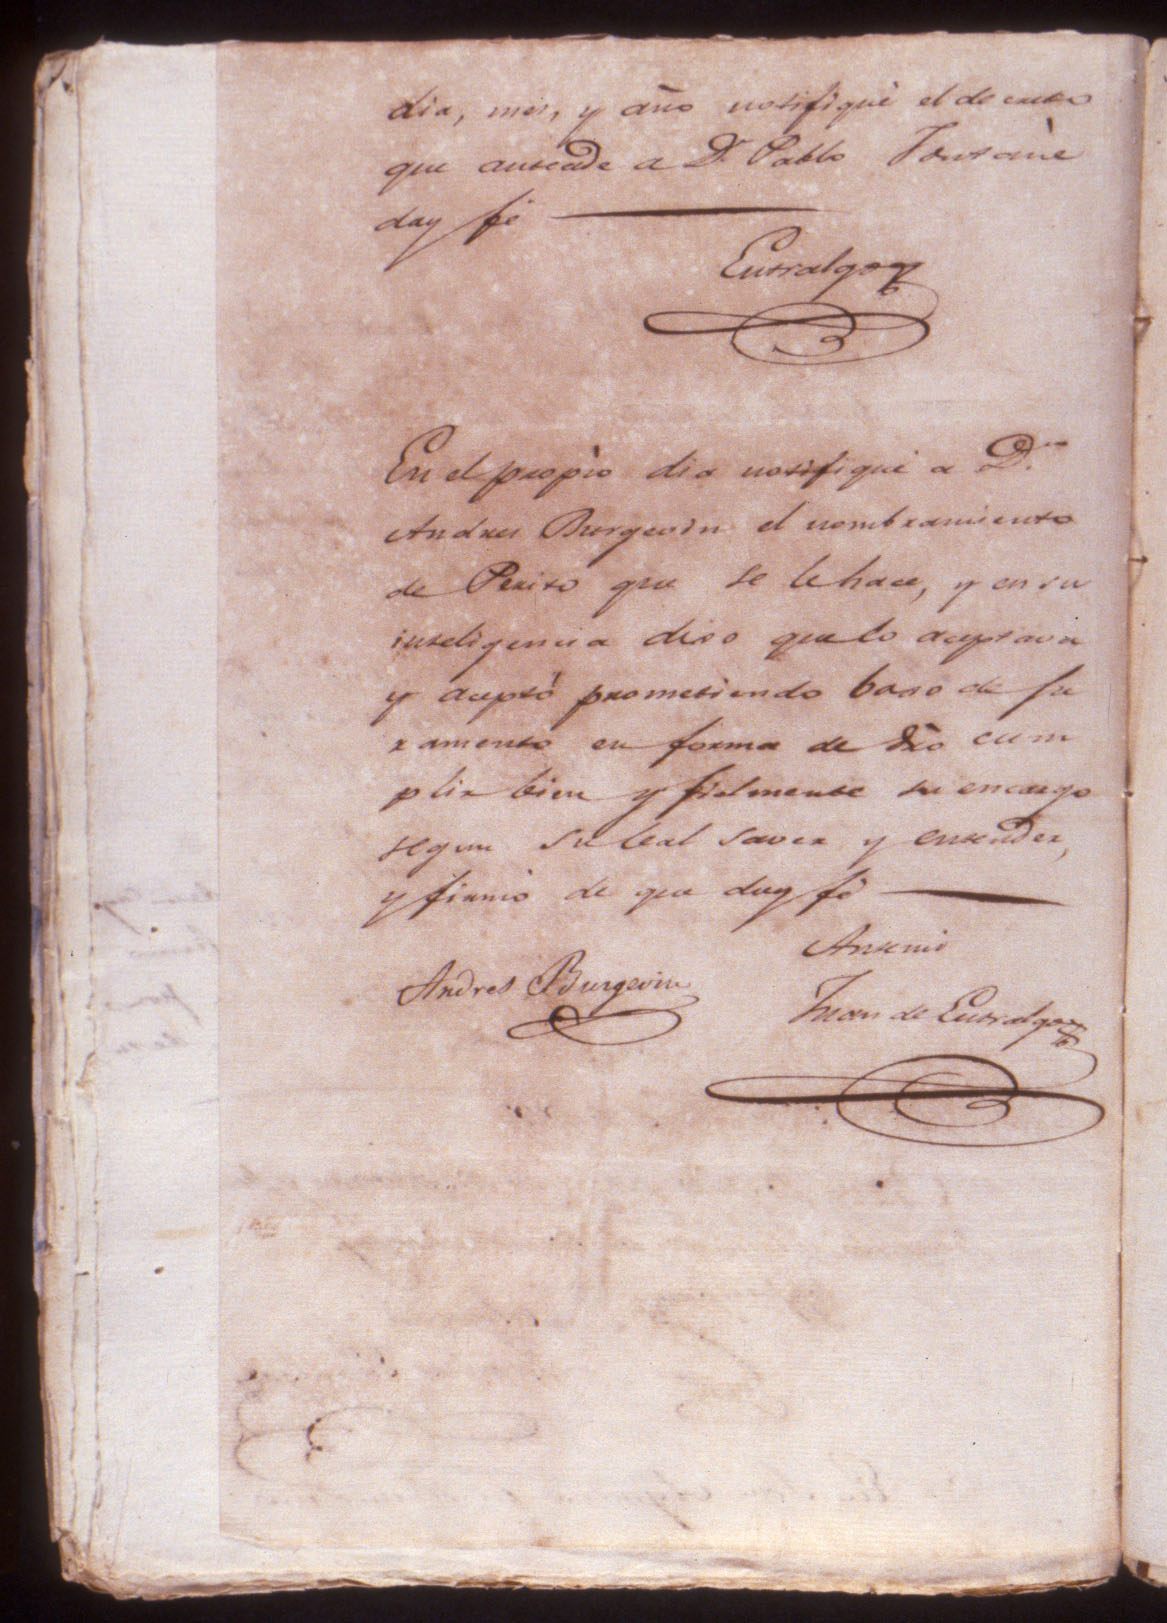 dia, mes, y año notifiqué el decreto
que antecede a Dn. Pablo Fontané
doy fé
Entralgo
En el propio dia notifiqué a Dn.
Andres Burgevin el nombramiento
de Perito que se le hace, y en su
inteligencia dixo que lo aceptava
y aceptó prometiendo baxo de ju
ramento en forma de dro cum
plir bien y fielmente su encargo
segun su leal saver y entender,
y firmó de que doy fé
Antemi
Andres Burgevin
Juan de Entralgo